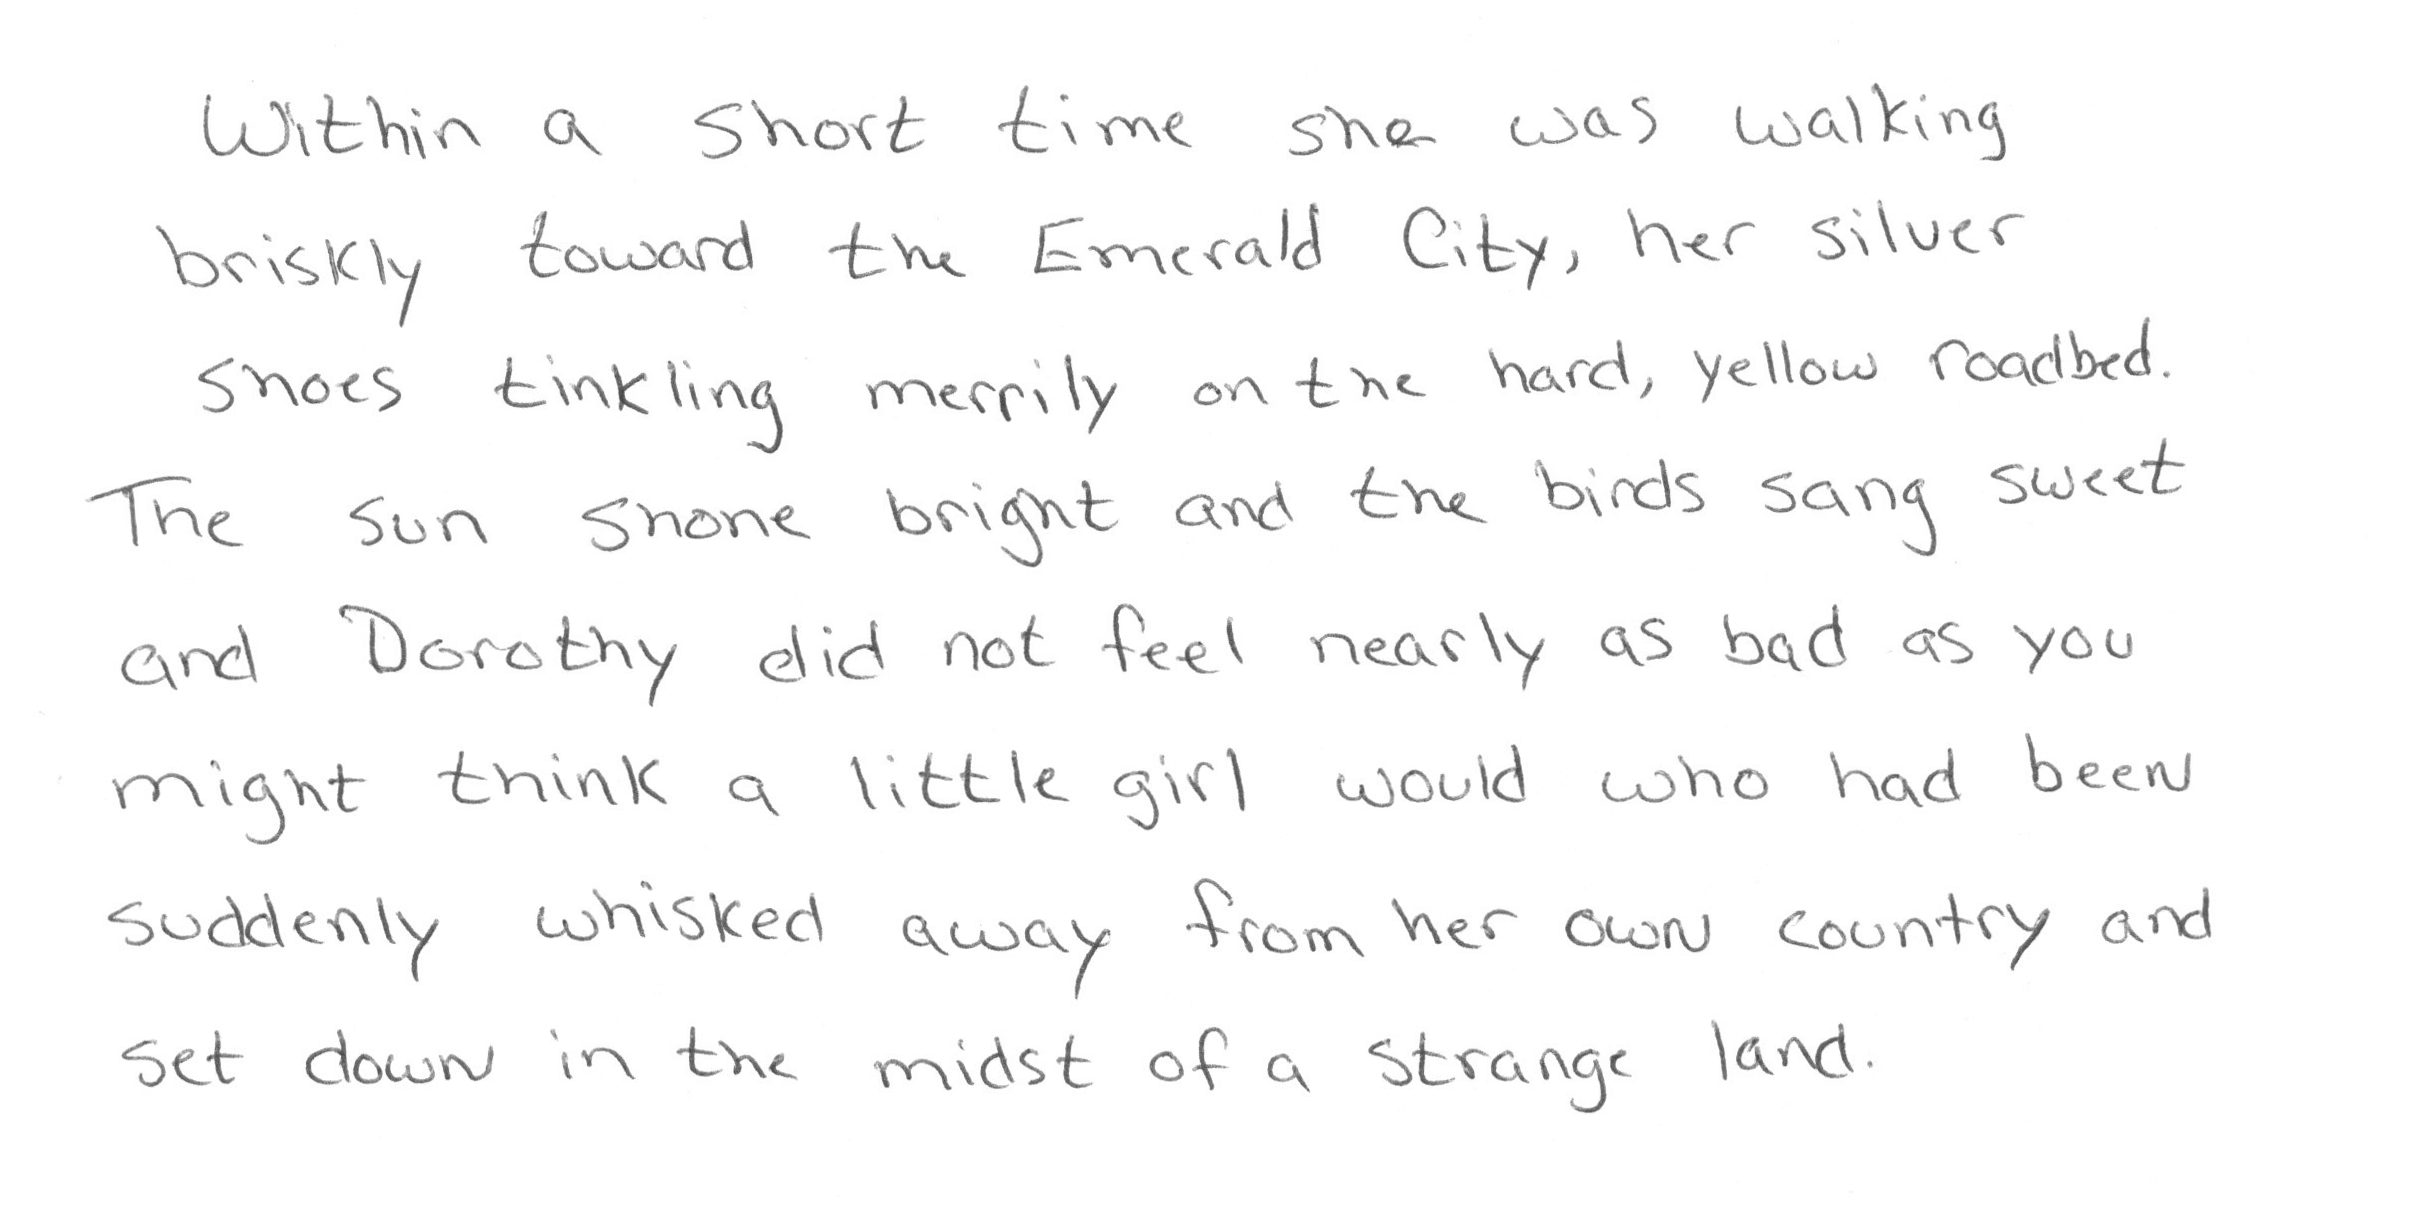 Within a short time she was walking
briskly toward the Emerald City, her silver
shoes tinkling merrily on the hard, yellow roadbed.
The sun shone bright and the birds sang sweet
and Dorothy did not feel nearly as bad as you
might think a little girl would who had been
suddenly whisked away from her own country and
set down in the midst of a strange land.